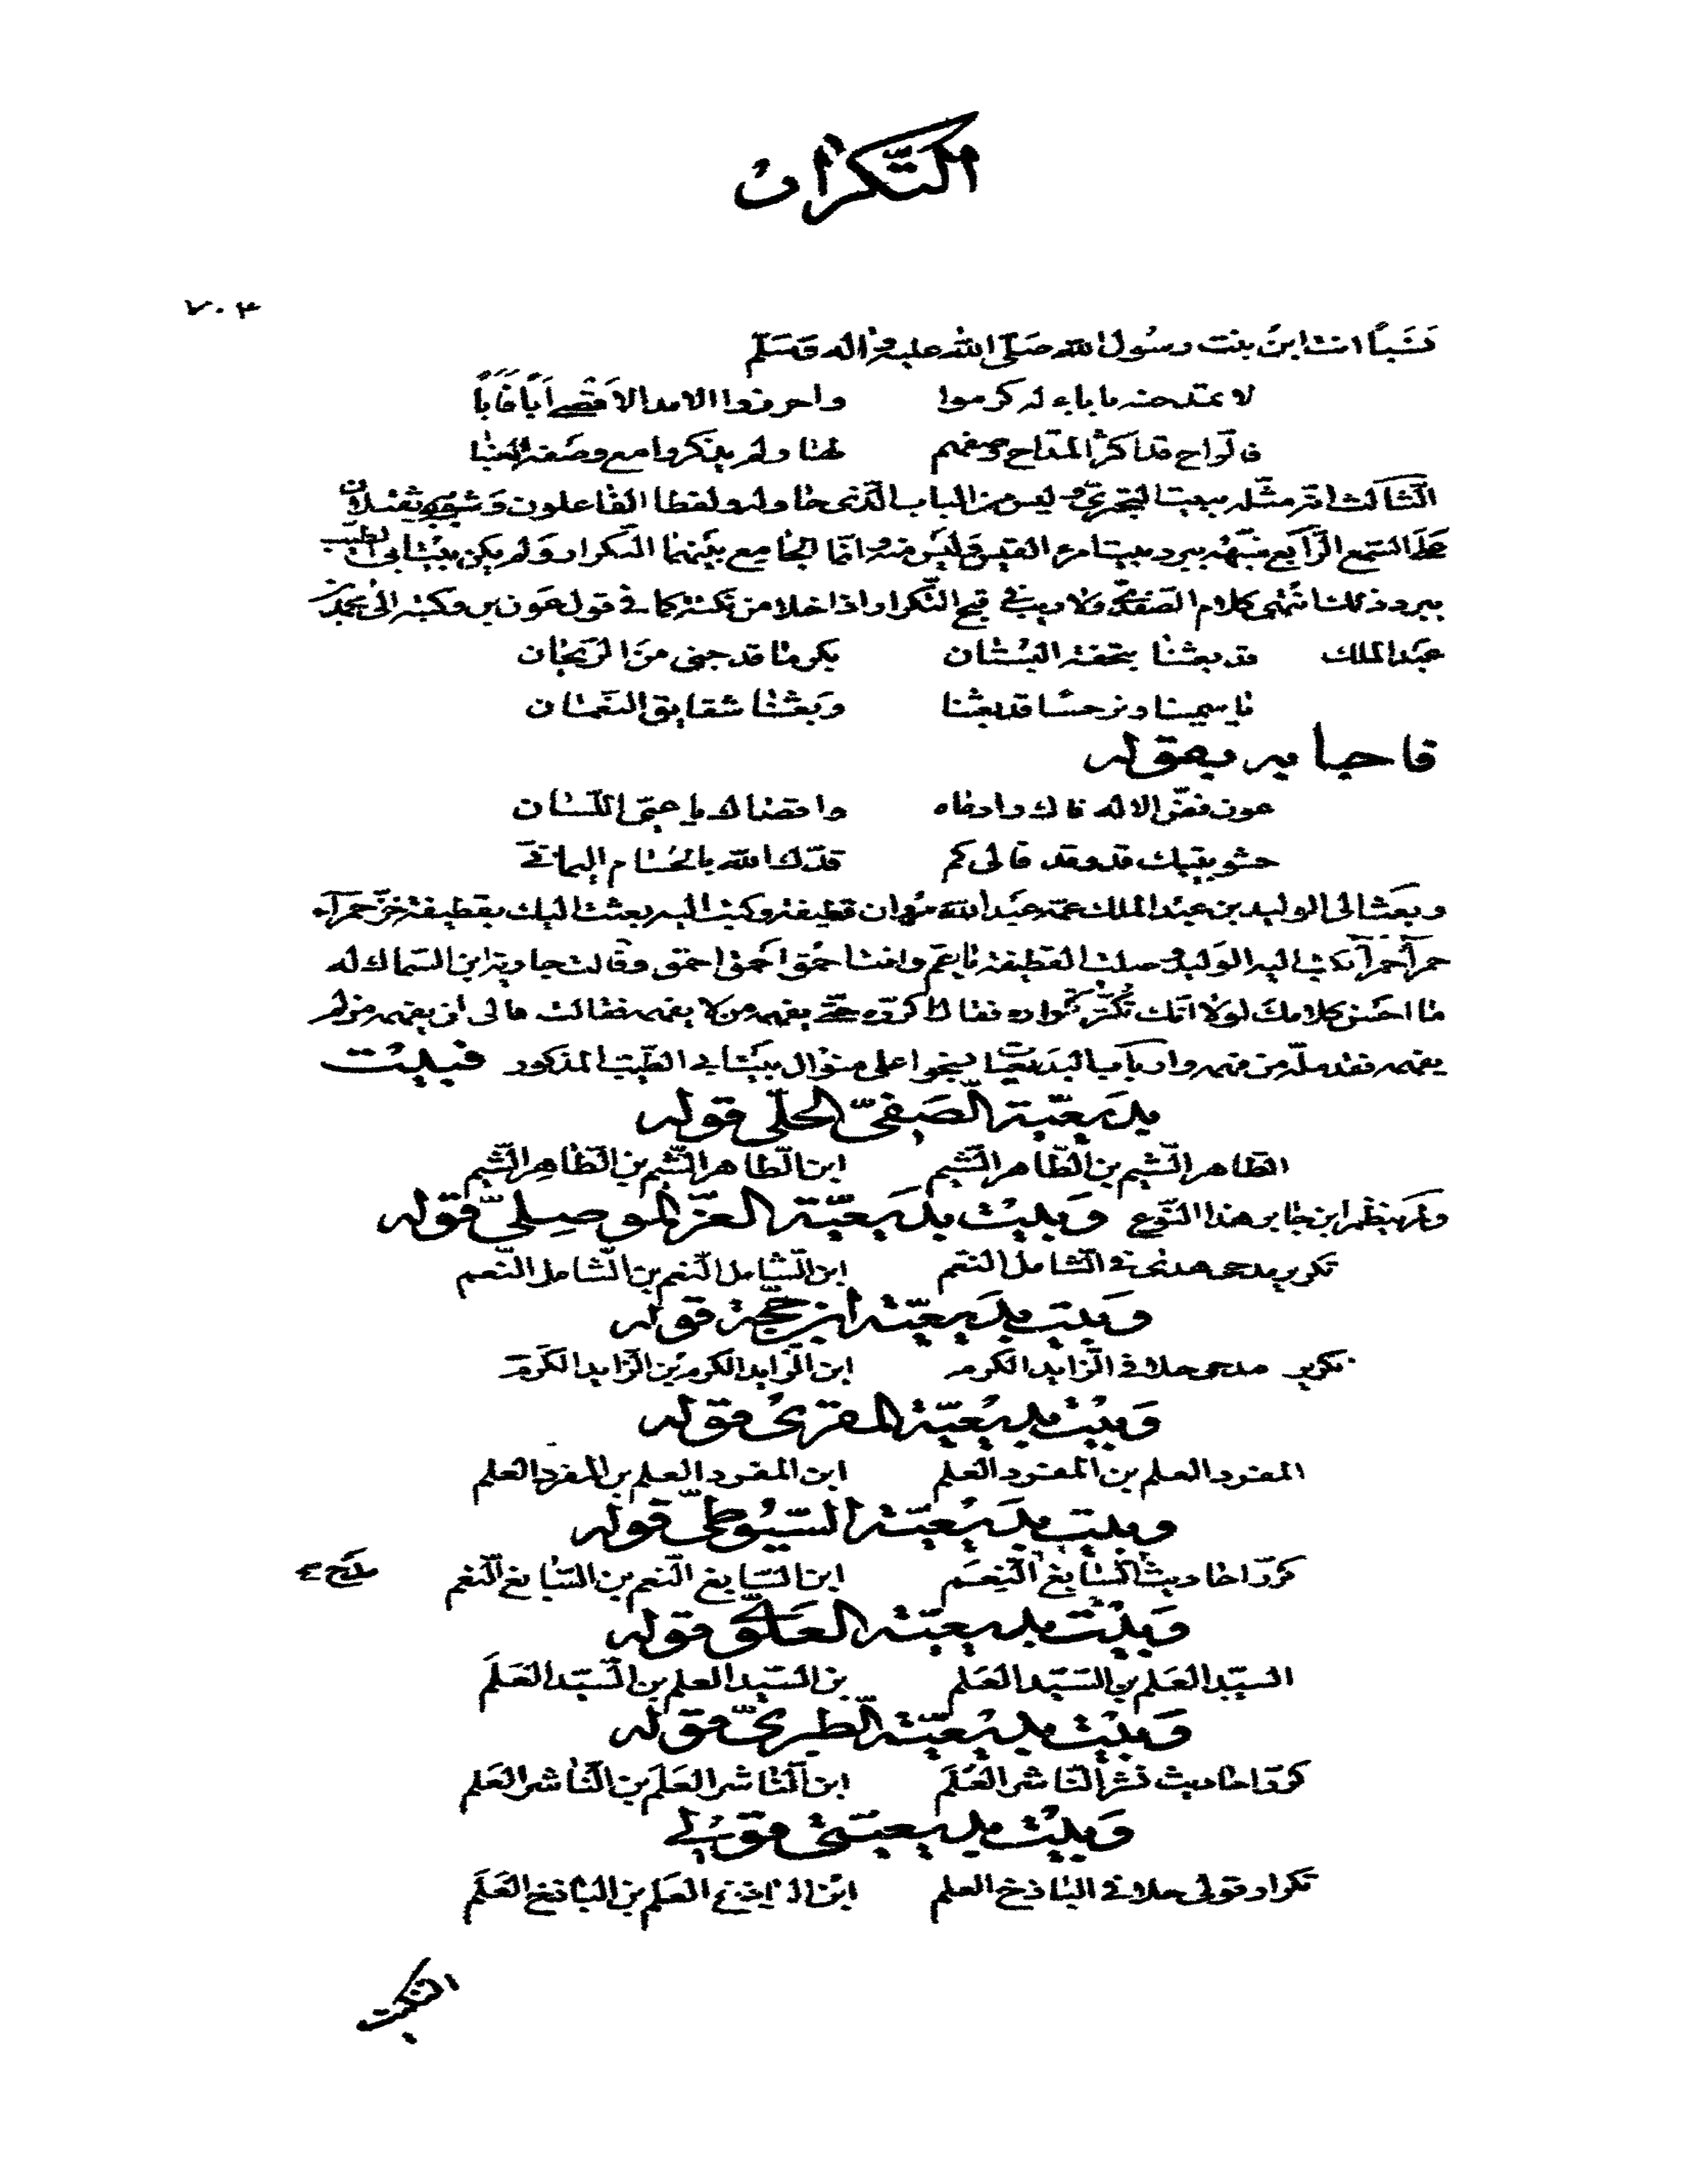 التكرار
٧٠٣
نسباً انت ابن بنت رسول الله صلى الله عليه واله وسلم
لا تمتدحنه باباء له كرموا واحرزوا الامد الاقصى اباً فاباً
فالراح قد اكثر المداح وصفهم لها ولم يذكروا مع وصفه العنبا
الثالث انه مثله ببيت البحتري وليس من الباب الذي حاوله ولفظا الفاعلون
السمع الرابع شبهه ببرد بيت امرء القيس وليس منه وانما الجامع بينهما التكرار ولم يكن بيت ابى الطيب
ببرد ذلك انتهى كلام الصفدي ولا ريب في قبح التكرار اذا خلا من نكتة كما في قول عون بن وكتبه الى محمد بن
عبد الملك قد بعثنا بتحفة البستان بكر ما قد جنى من الريحان
ياسمينا ونرجسا قد بعثنا وبعثنا شقايق النعمان
فاجابه بقوله
عون فض الاله فاك وادماه واقصاك يا عيى اللسان
حشو بيتيك قد وقد فالى كم قدك الله بالحسام اليمانى
وبعث الى الوليد بن عبد الملك عمه عبد الله بن مروان قطيفة وكتب اليه بعثت اليك بقطيفة خز حمراء
حمراء حمراء فكتب اليه الوليد وصلت القطيفة يا عم وانت احمق احمق احمق وقالت جارية ابن السماك له
ما احسن كلامك لولا انك تكثر ترداده فقال اكرره حتى يفهمه من لا يفهمه فقالت فالى ان يفهمه من لم
يفهمه فقد ملّه من فهمه وارباب البديعيات نسجوا على منوال بيت ابى الطيب المذكور فبيت
بديعية الصفي الحلي قوله
الطاهر الشيم بن الطاهر الشيم ابن الطاهر الشيم بن الطاهر الشيم
ولم ينظم ابن جابر هذا النوع وبيت بديعية العز الموصلي قوله
تكرير مدحى هدى في الشامل النعم ابن الشامل النعم بن الشامل النعم
وبيت بديعية ابن حجة قوله
تكرير مدحى حلا في الزايد الكرم ابن الزايد الكرم بن الزايد الكرم
وبيت بديعية المقري قوله
المفرد العلم بن المفرد العلم ابن المفرد العلم بن المفرد العلم
وبيت بديعية السيوطي قوله
كرر احاديث السابغ النعم ابن السابغ النعم بن السابغ النعم
وبيت بديعية العلوي قوله
السيد العلم بن السيد العلم بن السيد العلم بن السيد العلم
وبيت بديعية الطبري قوله
كرر احاديث نشر الناشر العلم ابن الناشر العلم بن الناشر العلم
وبيت بديعيتي قولي
تكرار قولى حلا في الباذخ العلم ابن الباذخ العلم بن الباذخ العلم
التنكيت